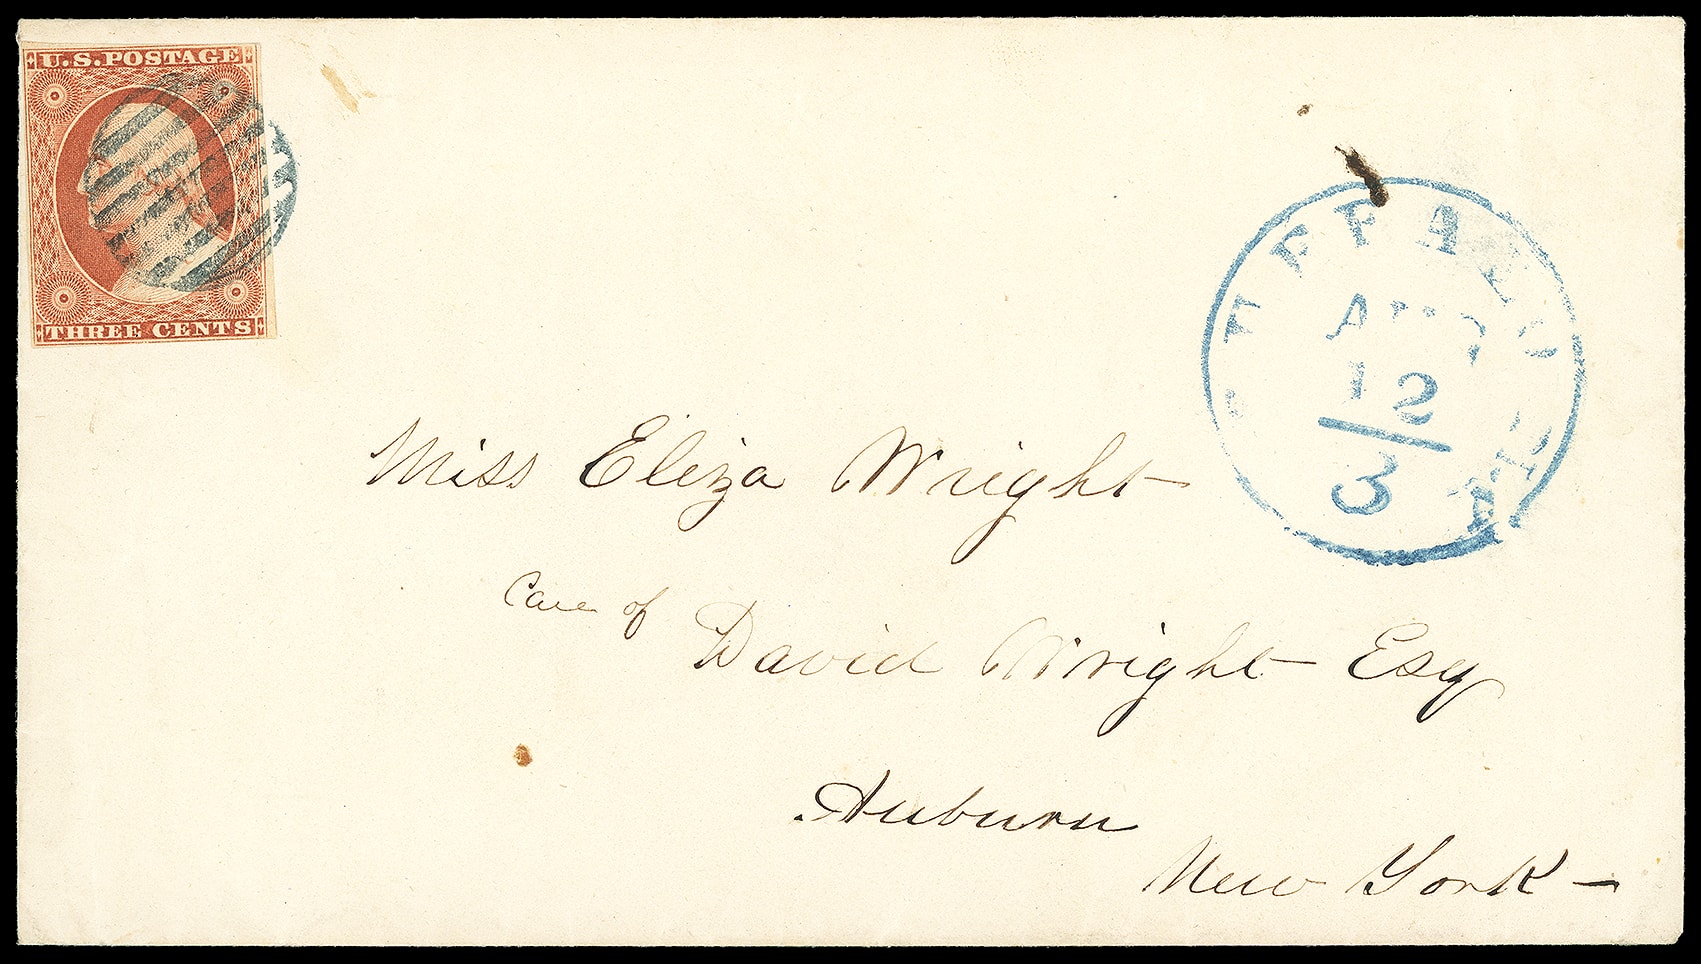 U.S. POSTAGE
THREE CENTS
BUFFALO N.Y.
AUG
12
3
Miss Eliza Wright
Care of
David Wright Esq
Auburn
New York